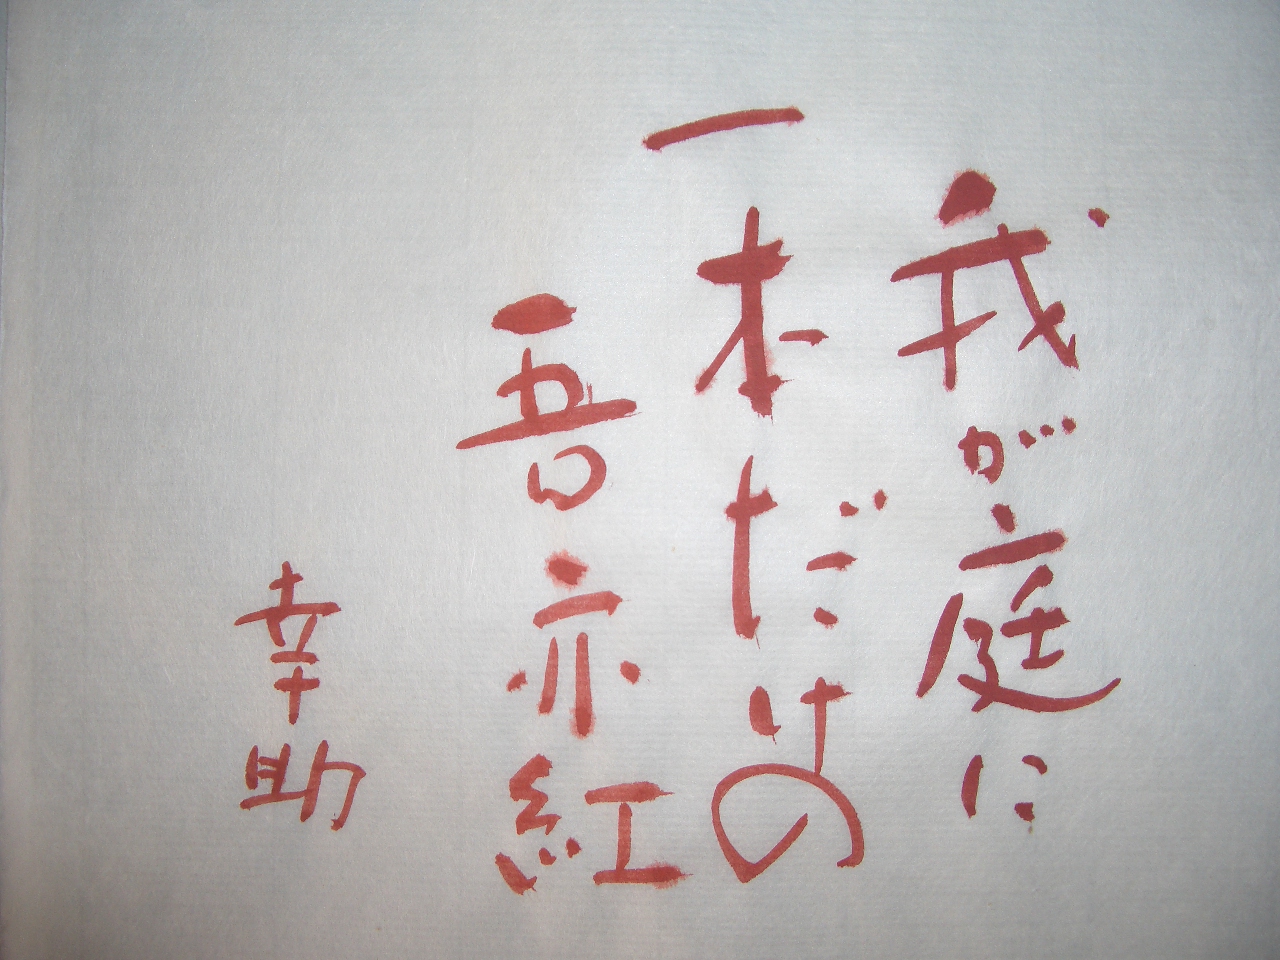 我が庭に
一本だけの
吾亦紅
幸助